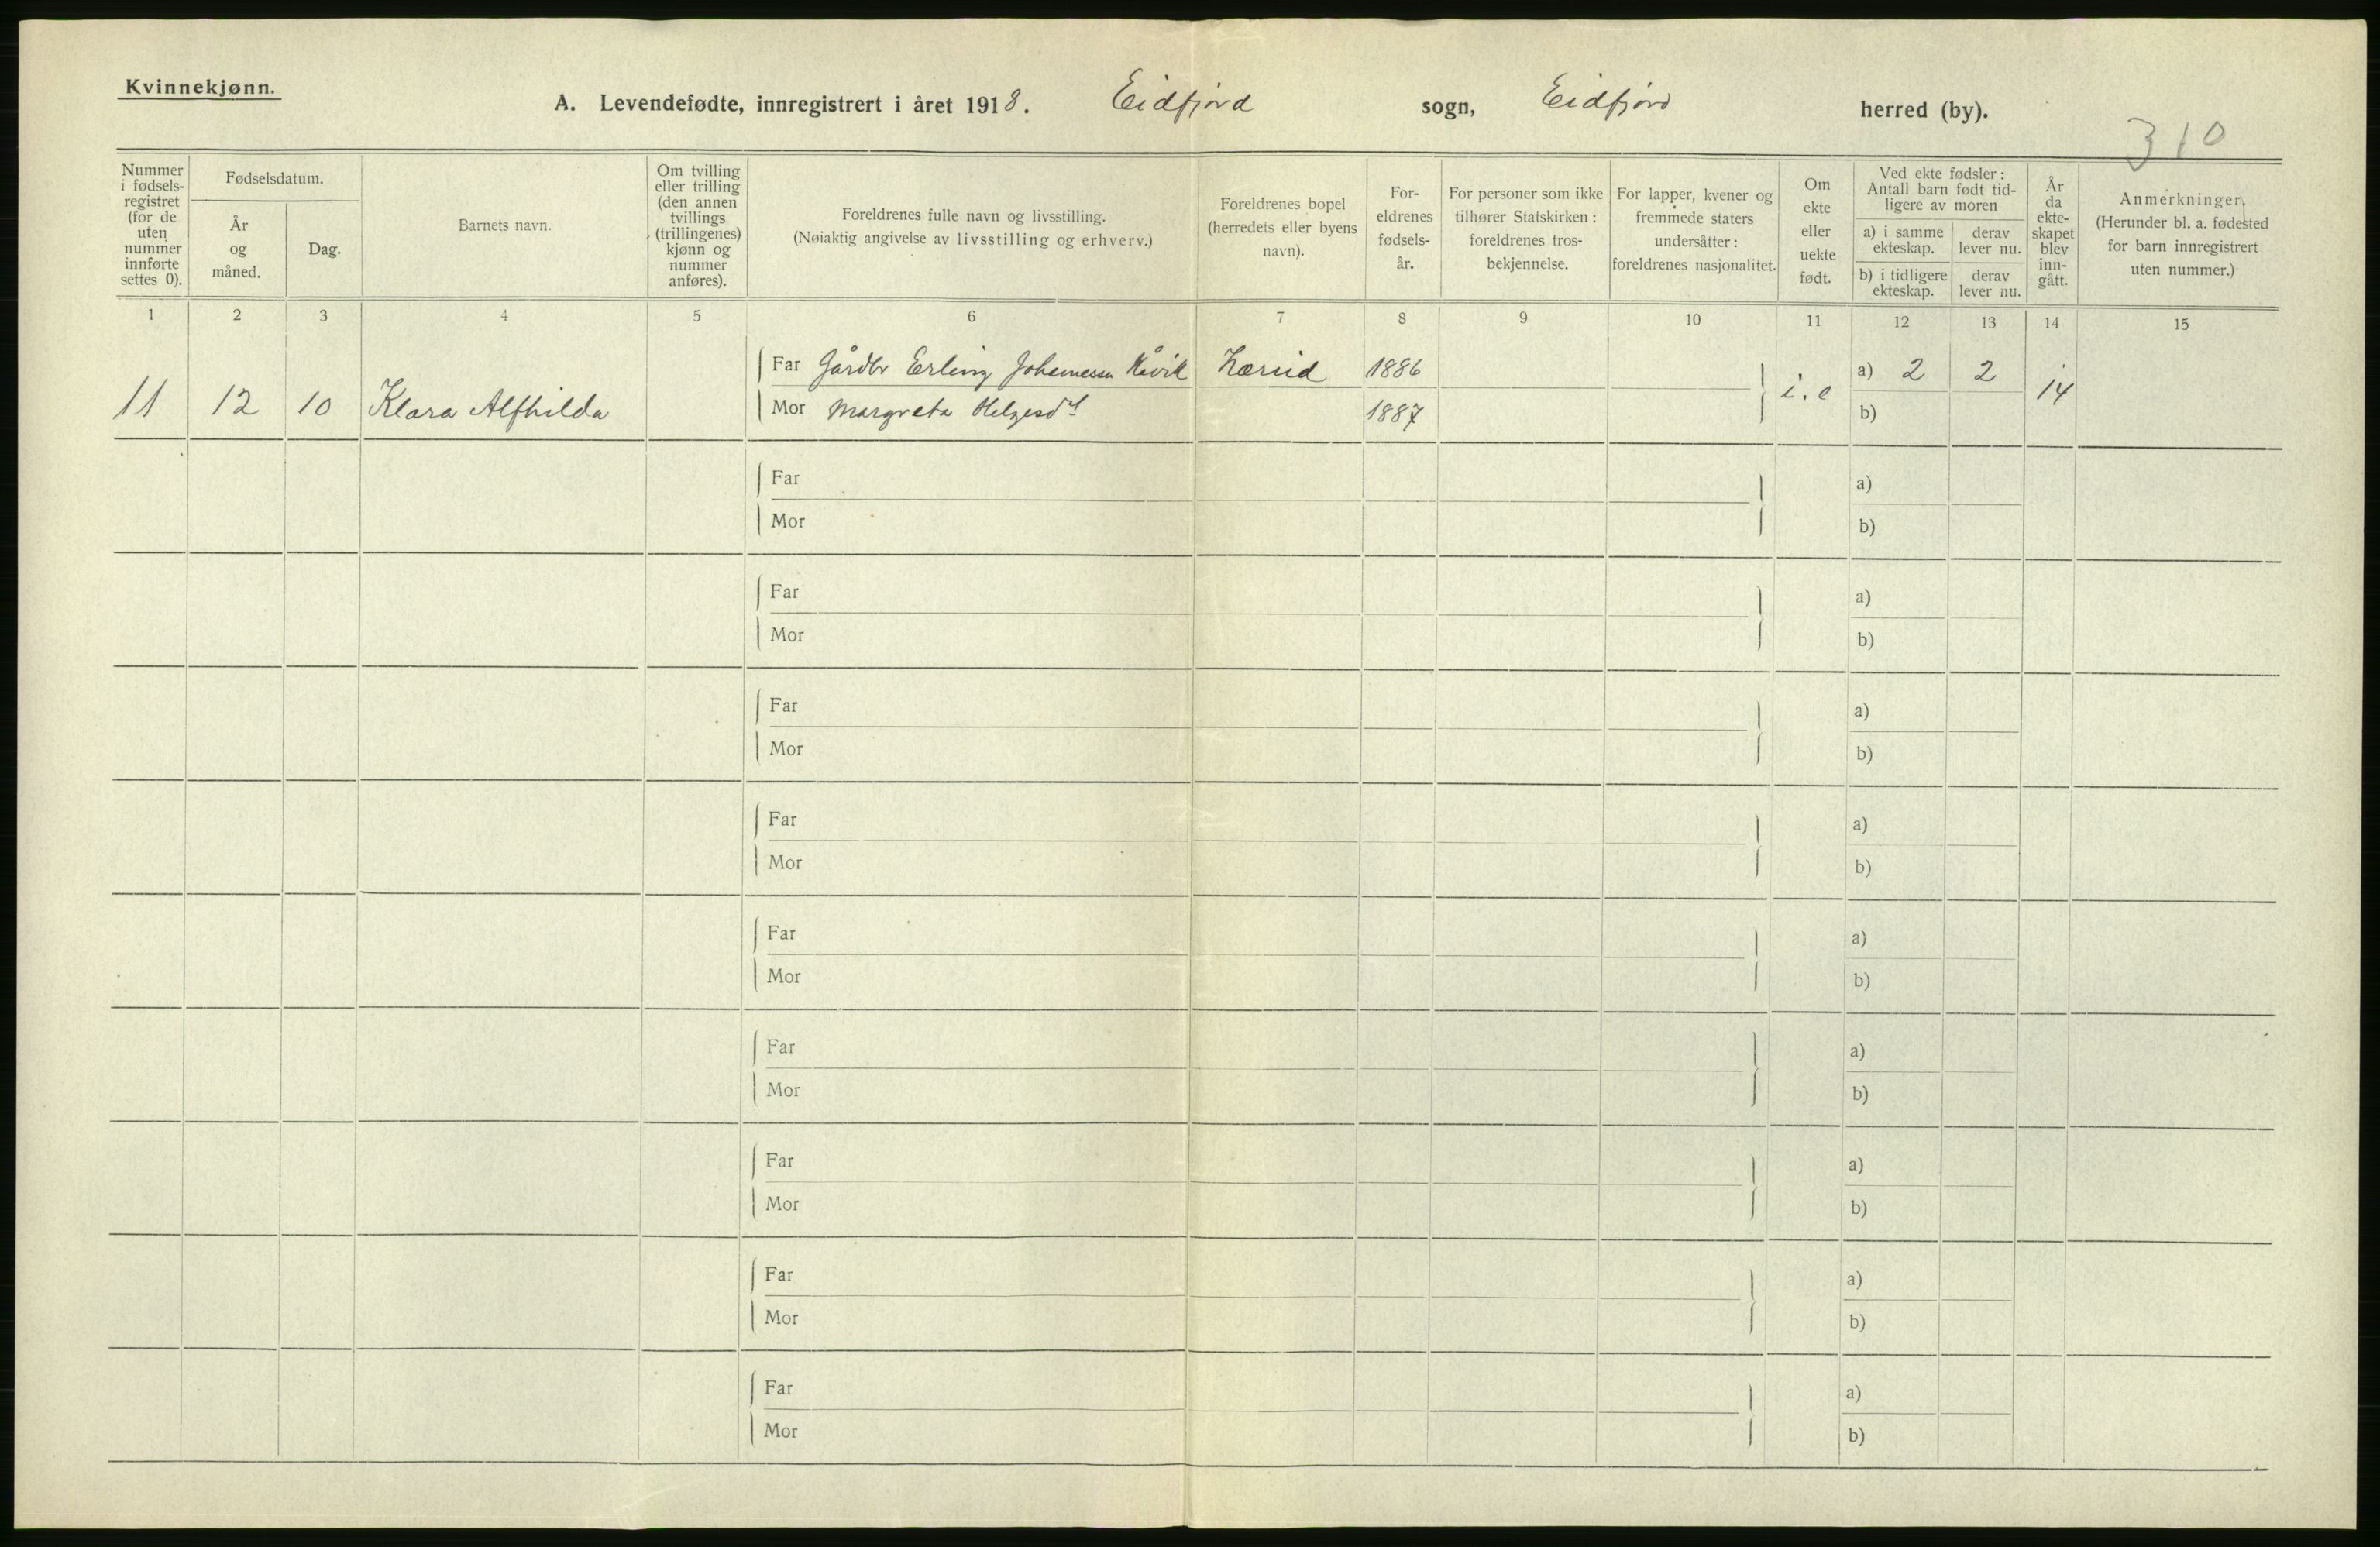 Kvinnekjønn.
A. Levendefødte, innregistrert i året 1918. Eidfjord sogn, Eidfjord herred (by).
310
Nummer i fødsels-registret (for de uten nummer innførte settes 0).
Fødselsdatum.
År og måned.
Dag.
Barnets navn.
Om tvilling eller trilling (den annen tvillings (trillingenes) kjønn og nummer anføres).
Foreldrenes fulle navn og livsstilling.
(Nøiaktig angivelse av livsstilling og erhverv.)
Foreldrenes bopel (herredets eller byens navn).
For-eldrenes fødsels-år.
For personer som ikke tilhører Statskirken: foreldrenes tros-bekjennelse.
For lapper, kvener og fremmede staters undersåtter: foreldrenes nasjonalitet.
Om ekte eller uekte født.
Ved ekte fødsler: Antall barn født tid-ligere av moren
a) i samme ekteskap.
derav lever nu.
b) i tidligere ekteskap.
derav lever nu.
År da ekte-skapet blev inn-gått.
Anmerkninger. (Herunder bl. a. fødested for barn innregistrert uten nummer.)
1 2 3 4 5 6 7 8 9 10 11 12 13 14 15
Far Gårdbr Erling Johannessen 1886 a) 2 2
11 12 10 Klara Alfhilda i. e 14
Mor Margreta Helgesdt 1887 b)
Far a)
Mor b)
Far a)
Mor b)
Far a)
Mor b)
Far a)
Mor b)
Far a)
Mor b)
Far a)
Mor b)
Far a)
Mor b)
Far a)
Mor b)
Far a)
Mor b)